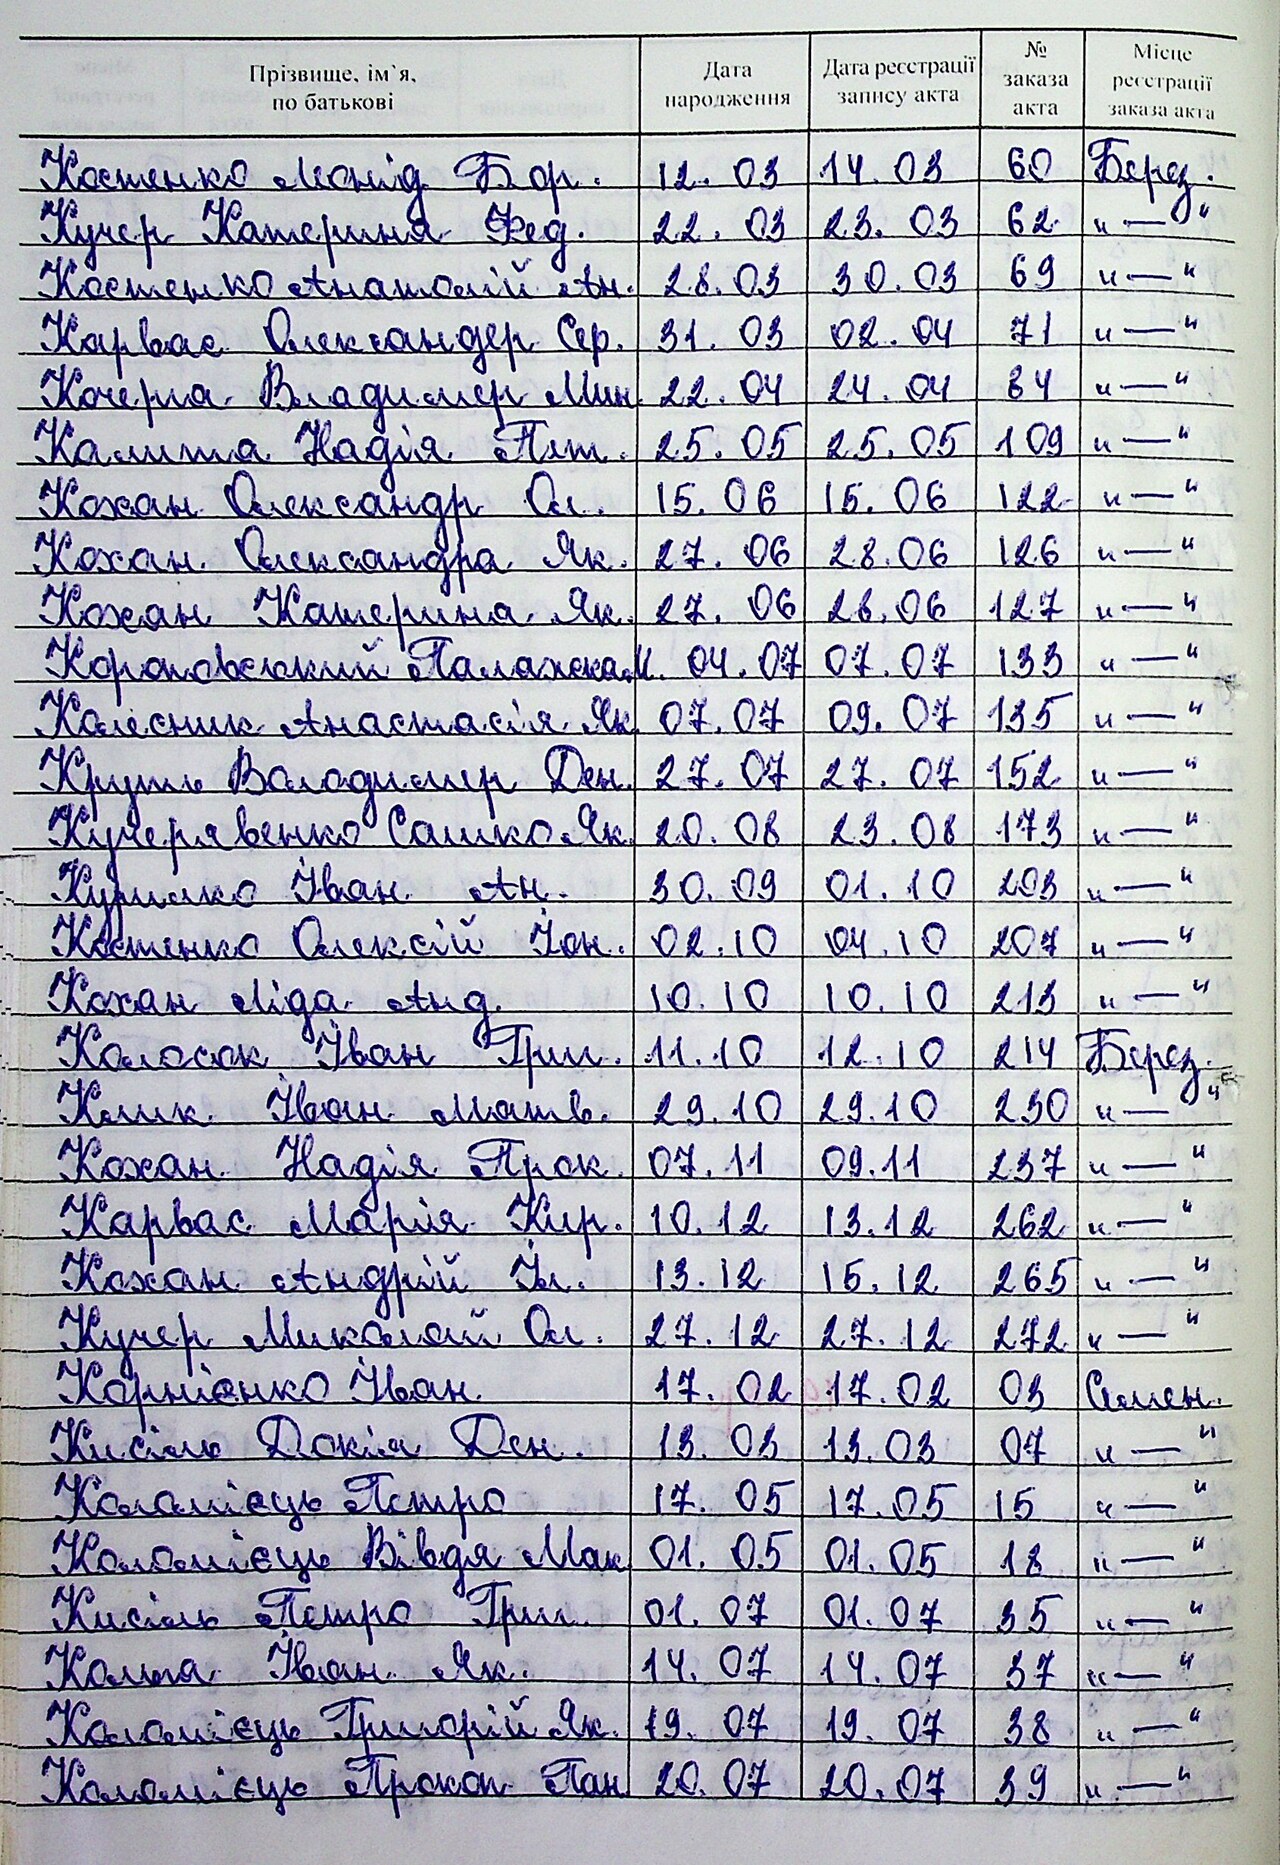 Прізвище, ім`я, по батькові Дата народження Дата реєстрації запису акта № заказа акта Місце реєстрації заказа акта
Костенко Леонід Бор. 12. 03 14. 03 60 Берез.
Кучер Катерина Фед. 22. 03 23. 03 62 "—"
Костенко Анатолій Ан. 28. 03 30. 03 69 "—"
Карвас Олександер Сер. 31. 03 02. 04 71 "—"
Кочерга Владимер Мин. 22. 04 24. 04 84 "—"
Калита Надія Пет. 25. 05 25. 05 109 "—"
Кохан Олександр Ол. 15. 06 15. 06 122 "—"
Кохан Олександра Як. 27. 06 28. 06 126 "—"
Кохан Катерина Як. 27. 06 28. 06 127 "—"
Палажка М. 04. 07 07. 07 133 "—"
Колесник Анастасія Як. 07. 07 09. 07 135 "—"
Круть Володимер Ден. 27. 07 27. 07 152 "—"
Кучерявенко Сашко Як. 20. 08 23. 08 173 "—"
Іван Ан. 30. 09 01. 10 203 "—"
Костенко Олексій Іон. 02. 10 04. 10 207 "—"
Кохан Ліда Анд. 10. 10 10. 10 213 "—"
Колосок Іван Григ. 11. 10 12. 10 214 Берез.
Клик Іван Матв. 29. 10 29. 10 230 "—"
Кохан Надія Прок. 07. 11 09. 11 237 "—"
Карвас Марія Кир. 10. 12 13. 12 262 "—"
Кохан Андрій Іл. 13. 12 15. 12 265 "—"
Кучер Миколай Ол. 27. 12 27. 12 272 "—"
Корнієнко Іван 17. 02 17. 02 03 Семен.
Кисіль Докія Ден. 13. 03 13. 03 07 "—"
Коломієць Петро 17. 05 17. 05 15 "—"
Коломієць Вівдя Мак. 01. 05 01. 05 18 "—"
Кисіль Петро Григ. 01. 07 01. 07 35 "—"
Іван Як. 14. 07 14. 07 37 "—"
Коломієць Григорій Як. 19. 07 19. 07 38 "—"
Коломієць Прокоп Пан. 20. 07 20. 07 39 "—"